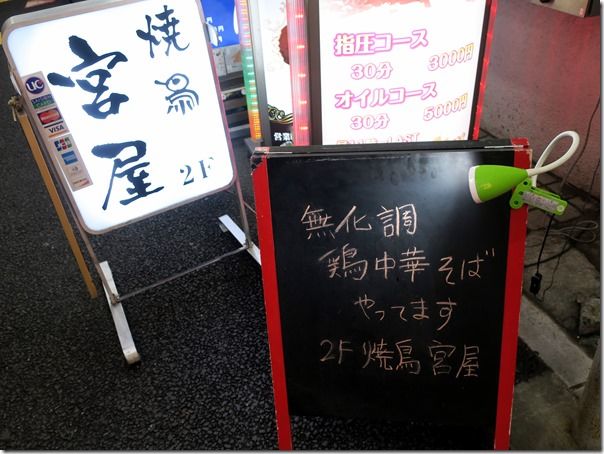 焼鳥
宮屋
2F
UC
VISA
JCB
指圧コース
30分 3000円
オイルコース
30分 5000円
営業
無化調
鶏中華そば
やってます
2F 焼鳥 宮屋